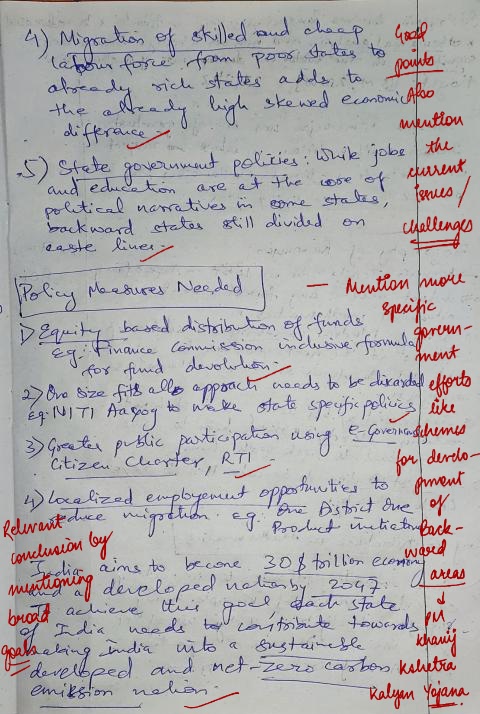 4) Migration of skilled and cheap
labour force from poor states to
already rich states adds to
the already high skewed economic
difference
5) State government policies: While jobs
and education are at the core of
political narratives in some states,
backward states still divided on
caste lines.
Good
points
Also
mention
the
current
issues/
challenges
Policy Measures Needed
1) Equity based distribution of funds
eg. Finance Commission inclusive formula
for fund devolution.
2) One size fits all approach needs to be discarded
eg. NITI Aayog to make state specific policies
3) Greater public participation using e-Governance,
Citizen Charter, RTI
4) Localized employement opportunities to
reduce migration eg. One District One
Product initiative
India aims to become 30 $ trillion economy
and a developed nation by 2047.
To achieve this goal, each state
of India needs to contribute towards
making India into a sustainable
developed and net-zero carbon
emission nation.
— Mention more
specific
govern-
ment
efforts
like
schemes
for develo-
pment
of
Back-
ward
areas
↓
PM
Khanij
Kshetra
Kalyan Yojana
Relevant
conclusion by
mentioning
broad
goals